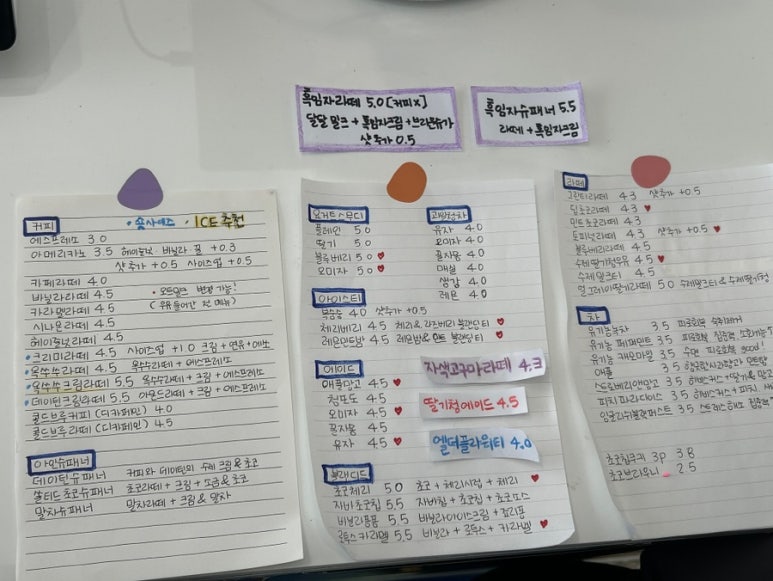 흑임자라떼 5.0 [커피x]
달달밀크 + 흑임자크림 + 브라운슈가
샷추가 0.5
흑임자슈패너 5.5
라떼 + 흑임자크림
커피 ICE 추천
에스프레소 3.0
아메리카노 3.5 헤이즐넛·바닐라 꿀 +0.3
샷추가 +0.5 사이즈업 +0.5
카페라떼 4.0
바닐라라떼 4.5 • 오트밀크 변경 가능!
카라멜라떼 4.5 (우유 들어간 전 메뉴)
시나몬라떼 4.5
헤이즐넛라떼 4.5
• 크리미라떼 4.5 사이즈업 +1.0 크림 + 연유 + 에쏘
• 옥수수라떼 4.5 옥수수라떼 + 에스프레소
• 옥수수크림라떼 5.5 옥수수라떼 + 크림 + 에스프레소
• 데이턴크림라떼 5.5 아몬드라떼 + 크림 + 에스프레소
콜드브루커피 (디카페인) 4.0
콜드브루라떼 (디카페인) 4.5
아인슈패너
데이턴슈패너 커피와 데이턴의 수제 크림 & 초코
솔티드초코슈패너 초코라떼 + 크림 + 소금 & 초코
말차슈패너 말차라떼 + 크림 & 말차
요거트스무디
플레인 5.0
딸기 5.0
블루베리 5.0 ♥
오미자 5.0 ♥
유자 4.0
오미자 4.0
꿀자몽 4.0
매실 4.0
생강 4.0
레몬 4.0
아이스티
복숭아 4.0 샷추가 +0.5
체리베리 4.5 체리 & 라즈베리 블랜딩티 ♥
레몬민트밤 4.5 레몬밤 & 민트 블랜딩티 ♥
에이드
애플망고 4.5 ♥
청포도 4.5
오미자 4.5 ♥
꿀자몽 4.5
유자 4.5 ♥
자색고구마라떼 4.3
딸기청에이드 4.5
엘더플라워티 4.0
블랜디드
초코체리 5.0 초코 + 체리시럽 + 체리 ♥
자바초코칩 5.5 자바칩 + 초코칩 + 초코소스
바닐라퐁퐁 5.5 바닐라아이스크림 + 컬리퐁
로투스카라멜 5.5 비닐라 + 로투스 + 카라멜 ♥
라떼
그린티라떼 4.3 샷추가 +0.5
딥초코라떼 4.3 ♥
민트초코라떼 4.3
토피넛라떼 4.3 샷추가 +0.5 ♥
블루베리라떼 4.5
수제딸기청우유 4.5 ♥
수제밀크티 4.5
얼그레이딸기라떼 5.0 수제밀크티 & 수제딸기청
차
유기농녹차 3.5 피로회복
유기농 페퍼민트 3.5 피로회복, 집중력,
유기농 캐모마일 3.5 수면 피로회복 good!
애플 3.5
스트로베리앤망고 3.5 히비스커스 + 딸기
피치파라다이스 3.5 히비스커스 + 피치
잉글리쉬블랙퍼스트 3.5 스트레스해소
초코칩쿠키 3p 3.8
초코브라우니 2.5